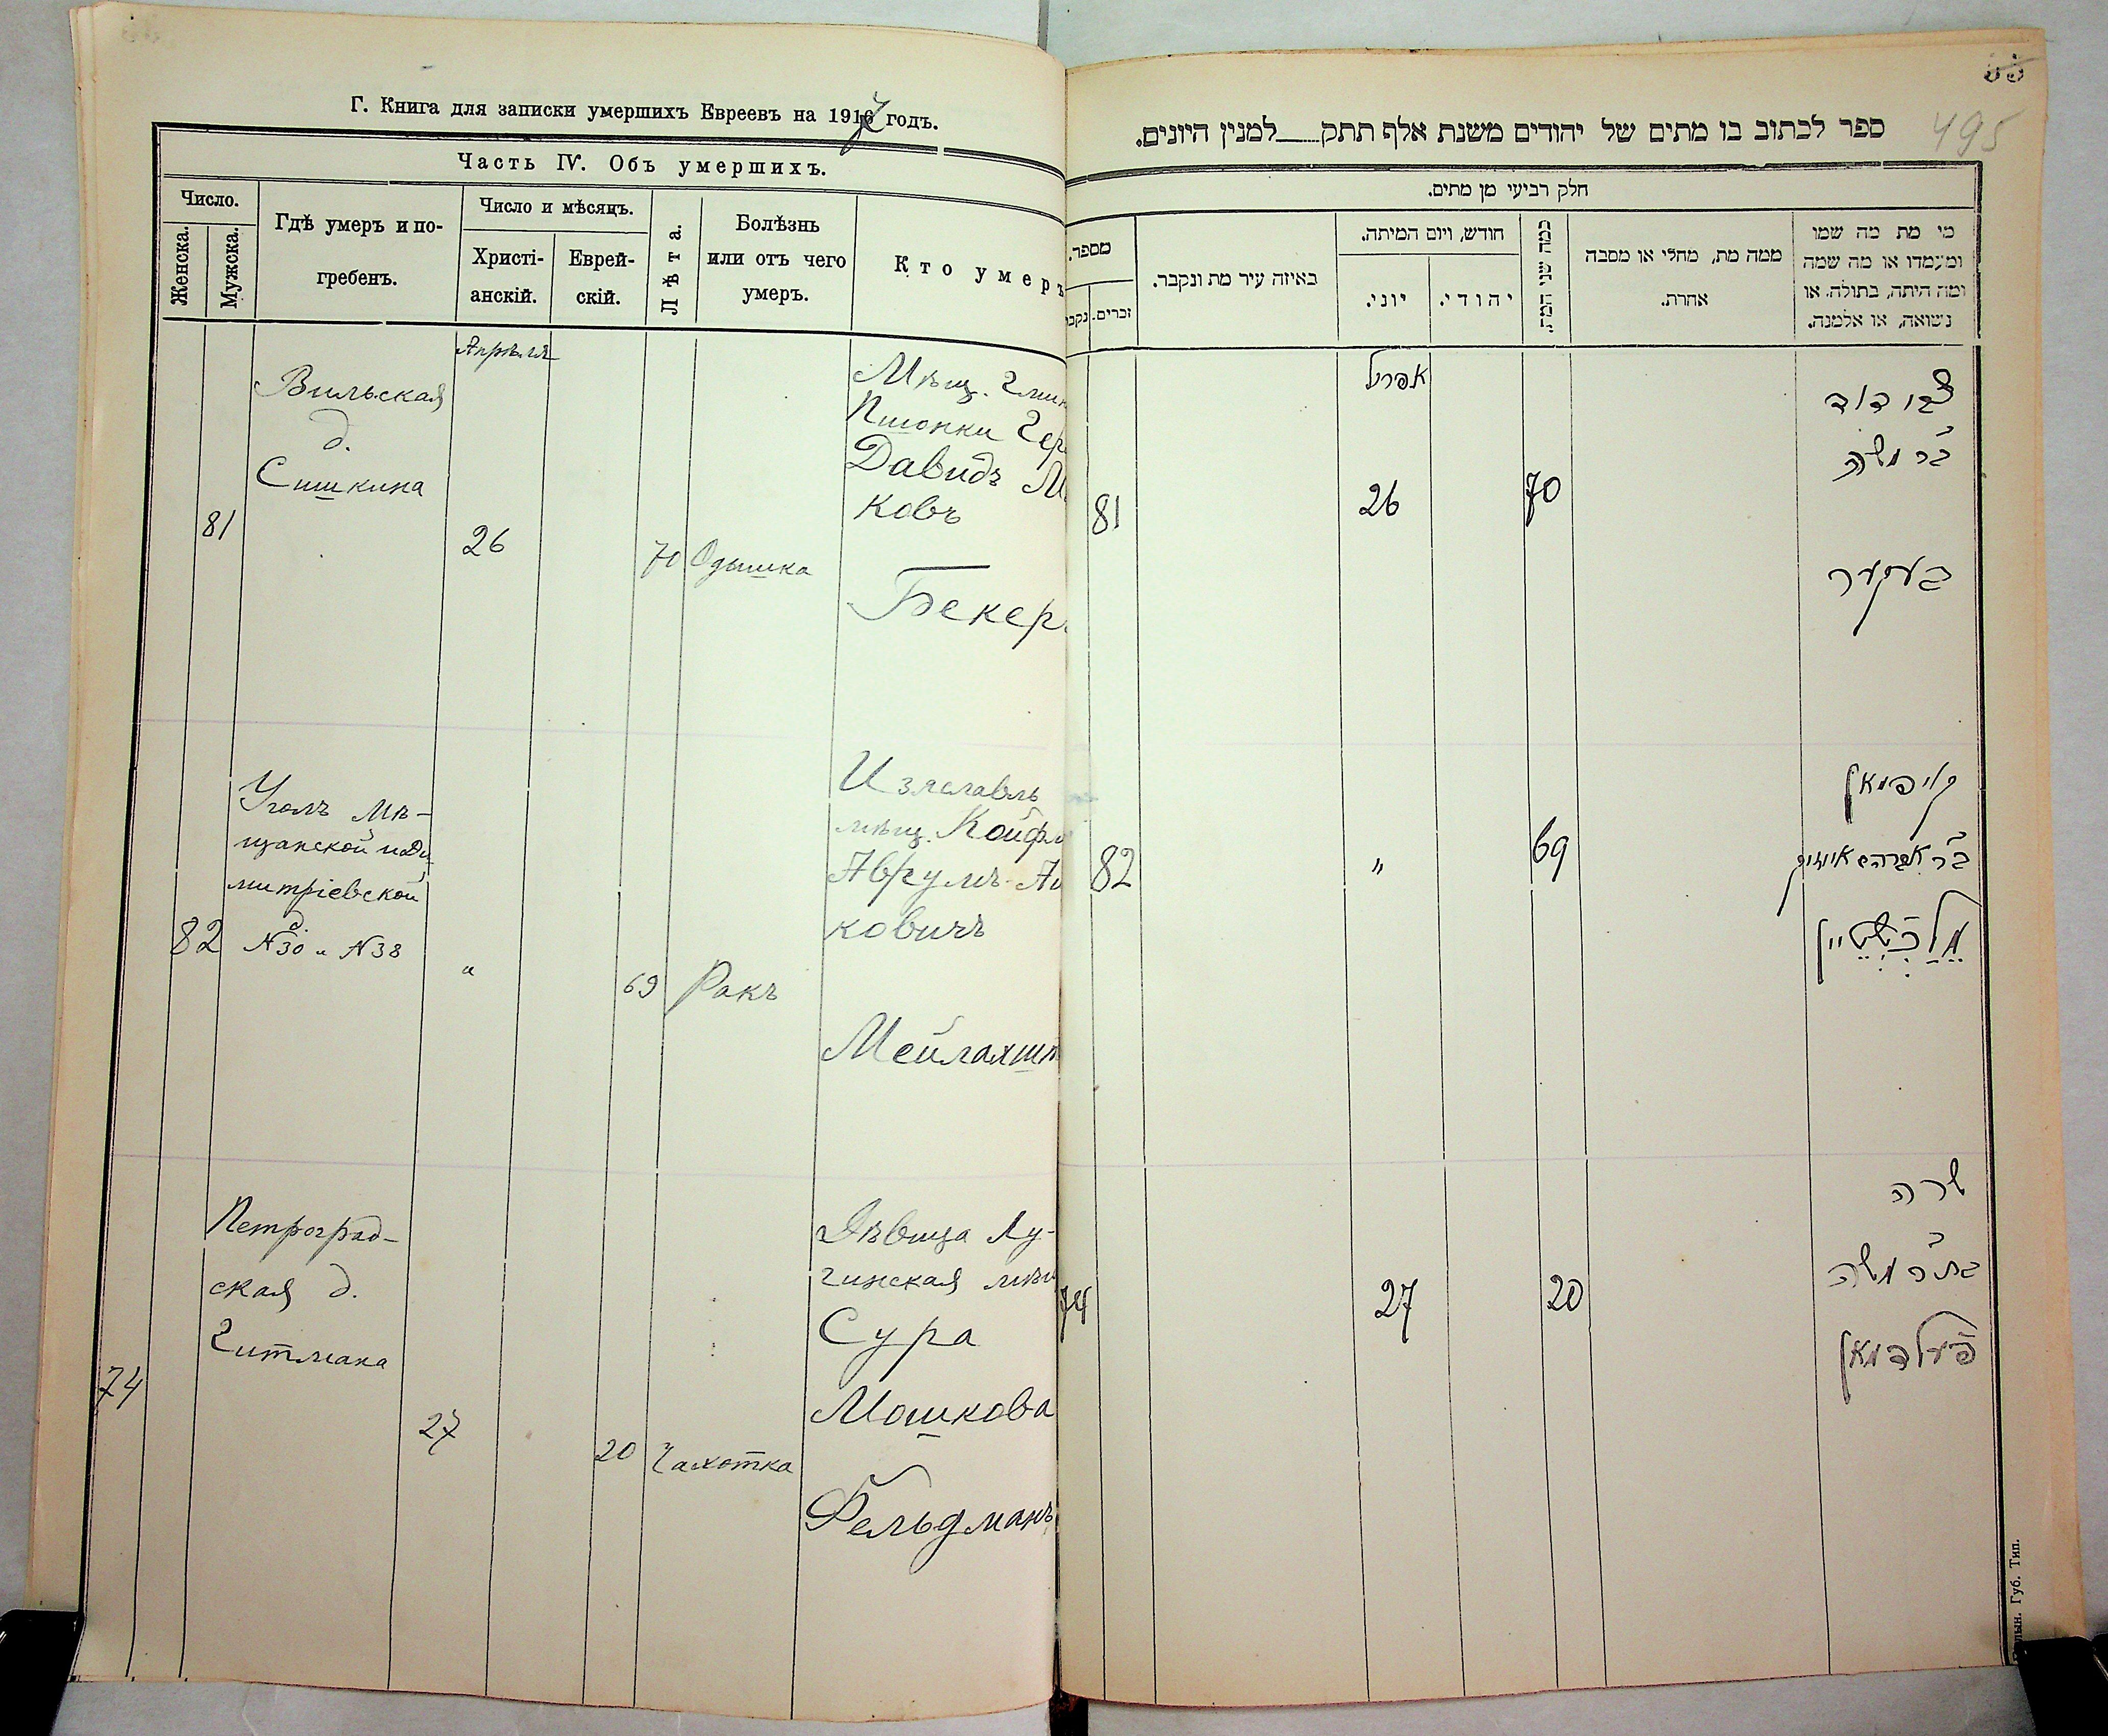 Г. Книга для записки умершихъ Евреевъ на 1917 годъ.
Часть IV. Объ умершихъ.
Число.
Женска.
Мужска.
Гдѣ умеръ и по-
гребенъ.
Число и мѣсяцъ.
Христі-
анскій.
Еврей-
скій.
Лѣта.
Болѣзнь
или отъ чего
умеръ.
Кто умеръ
Апрѣля
81
Вильская
д.
Сишкина
26
70
Одышка
Мѣщ.
Давидъ М
ковъ
Бекер
82
Уголъ Мѣ-
щанской и Ди
митріевской
д.
N30 и N38
"
69
Ракъ
Изяславль
мѣщ. Койфм
Аврумъ-А
ковичъ
Мейлахшт
74
Петроград-
ская д.
Гитмана
27
20
Чахотка
Дѣвица Лу-
гинская мѣщ
Сура
Мошкова
Фельдманъ
55
495
ספר לכתוב בו מתים של יהודים משנת אלף תתק למנין היונים.
חלק רביעי מן מתים.
מספר.
נקב
זכרים.
באיזה עיר מת ונקבר.
חודש, ויום המיתה.
יוני.
יהודי.
כמה שני המת.
ממה מת, מחלי או מסבה
אחרת.
מי מת מה שמו
ומעמדו או מה שמה
ומה היתה, בתולה, או
נשואה, או אלמנה.
81
אפריל
26
70
דוד
ב"ר משה
בעקער
82
"
69
קויפמאן
ב"ר אברהם אייזיק
מלכשטיין
74
27
20
שרה
בת ר' משה
פעלדמאן
Губ. Тип.